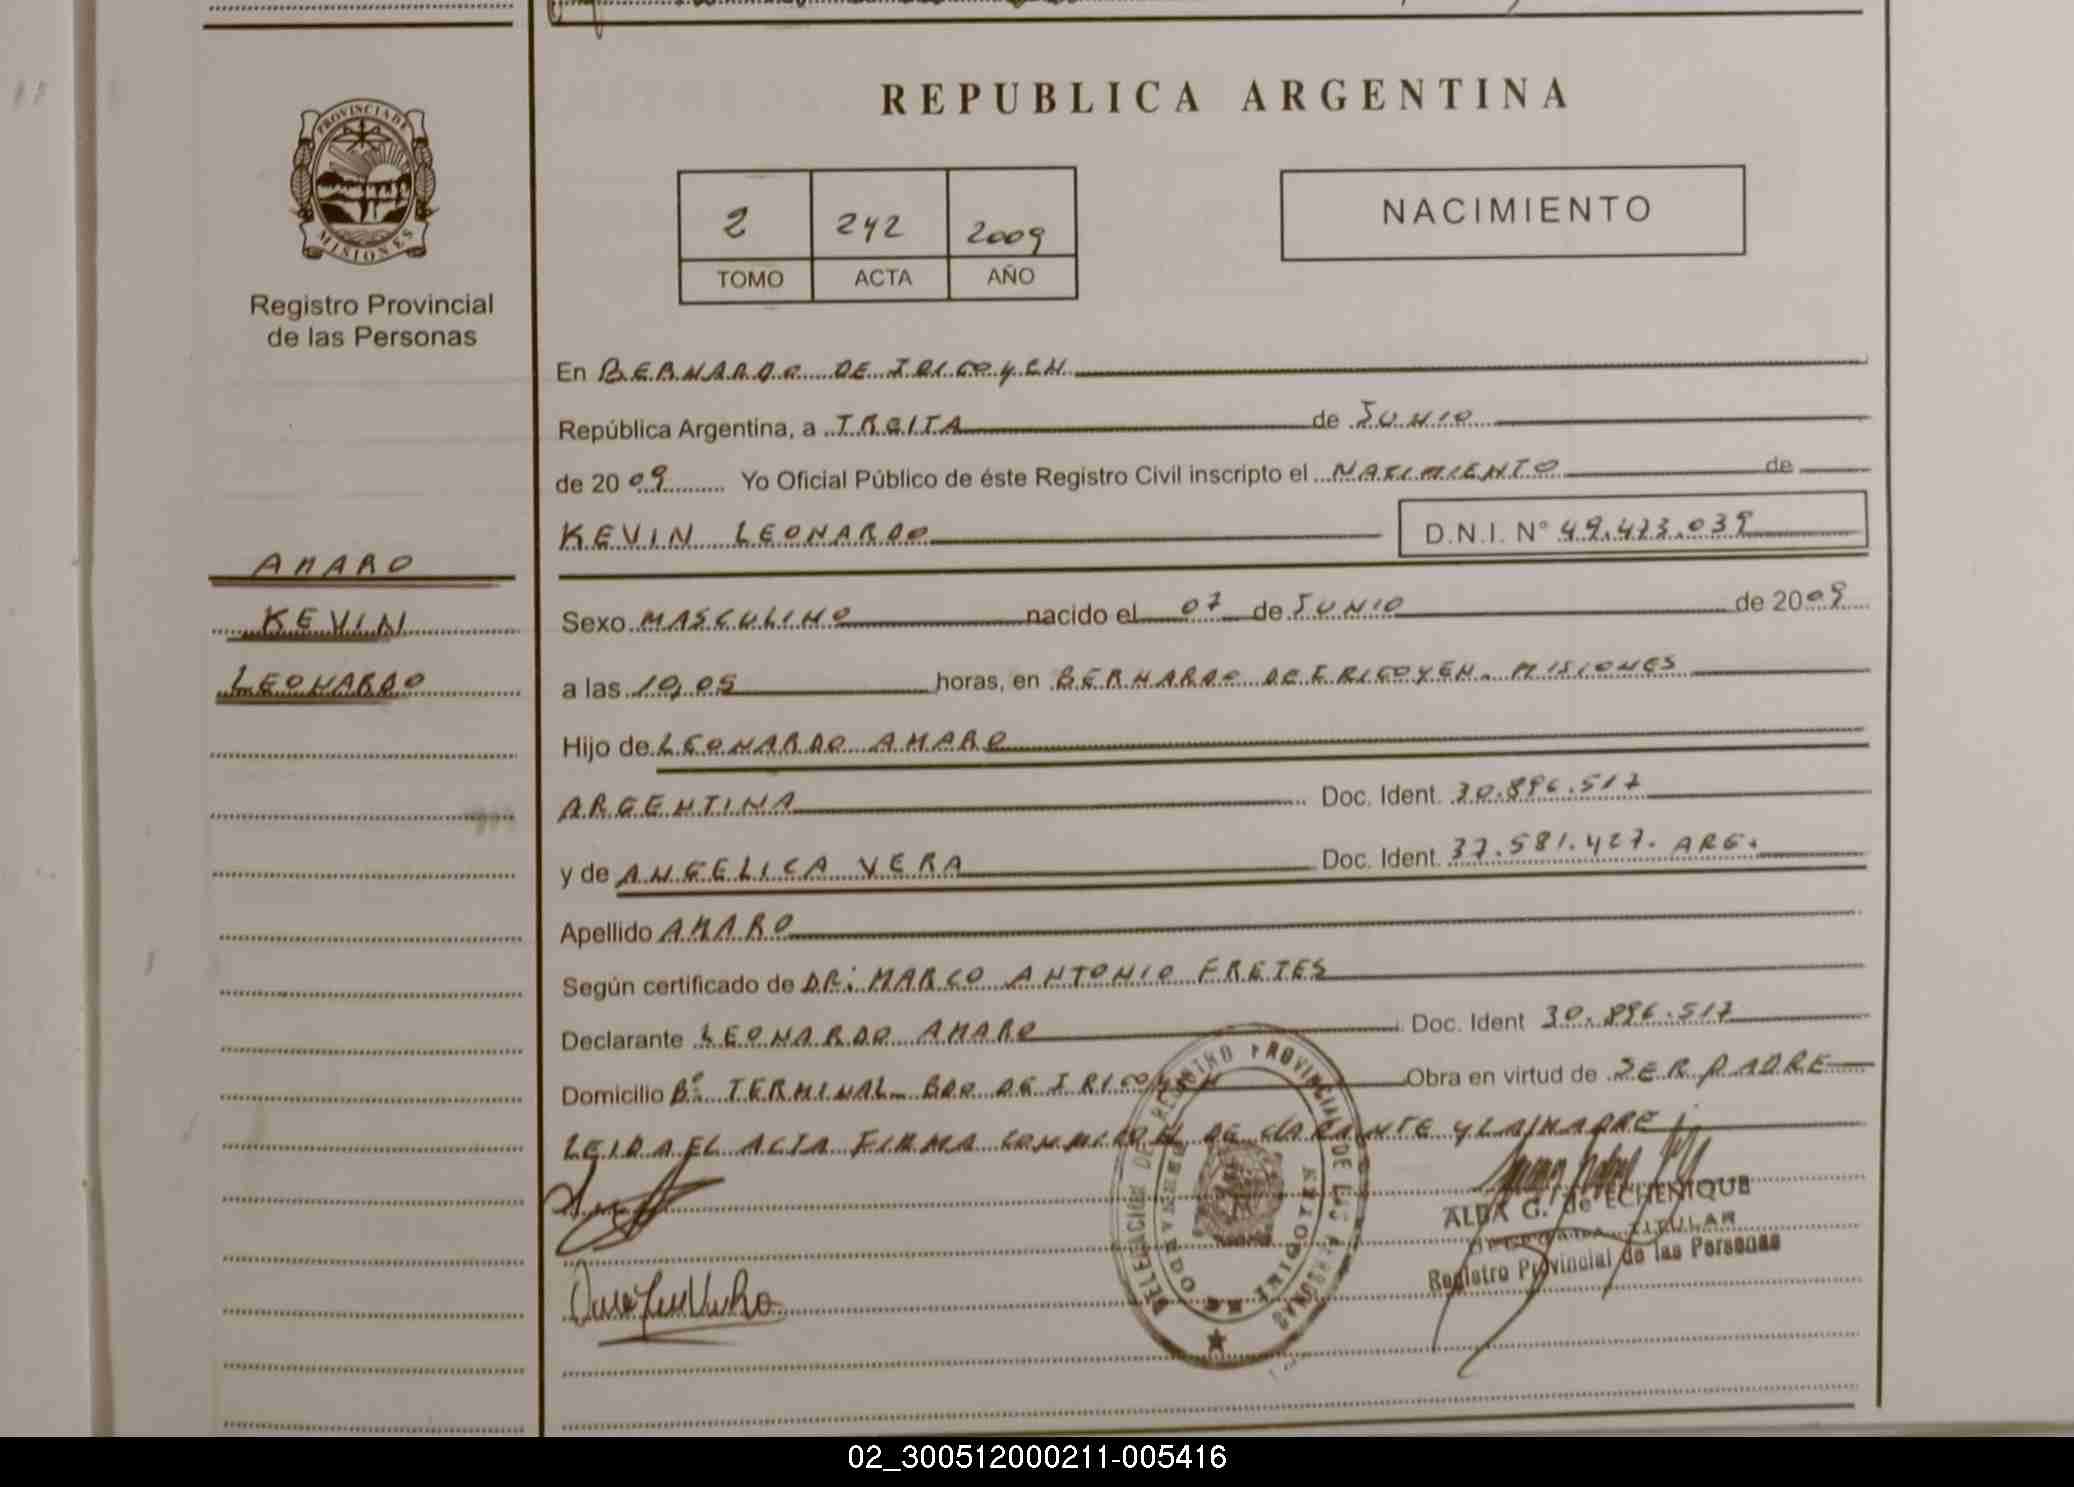 REPUBLICA ARGENTINA
PROVINCIA DE
MISIONES
Registro Provincial
de las Personas
2 242 2009
TOMO ACTA AÑO
NACIMIENTO
En BERNARDO DE IRIGOYEN
República Argentina, a TREITA de JUNIO
de 2009 Yo Oficial Público de éste Registro Civil inscripto el NACIMIENTO de
KEVIN LEONARDO D.N.I. N° 49.473.039
AMARO
KEVIN
LEONARDO
Sexo MASCULINO nacido el 07 de JUNIO de 2009
a las 10,05 horas, en BERNARDO DE IRIGOYEN. MISIONES
Hijo de LEONARDO AMARO
ARGENTINA Doc. Ident. 30.896.517
y de ANGELICA VERA Doc. Ident. 37.581.427. ARG.
Apellido AMARO
Según certificado de DR: MARCO ANTONIO FRETES
Declarante LEONARDO AMARO Doc. Ident 30.896.517
Domicilio B° TERMINAL- BDO DE IRIGOYEN Obra en virtud de SER PADRE
LEIDA EL ACTA FIRMA CONMIGO EL DECLARANTE Y LA MADRE
DELEGACION DE REGISTRO PROVINCIAL DE LAS PERSONAS
BERNARDO DE IRIGOYEN
ALBA G. de ECHENIQUE
TITULAR
Registro Provincial de las Personas
02_300512000211-005416